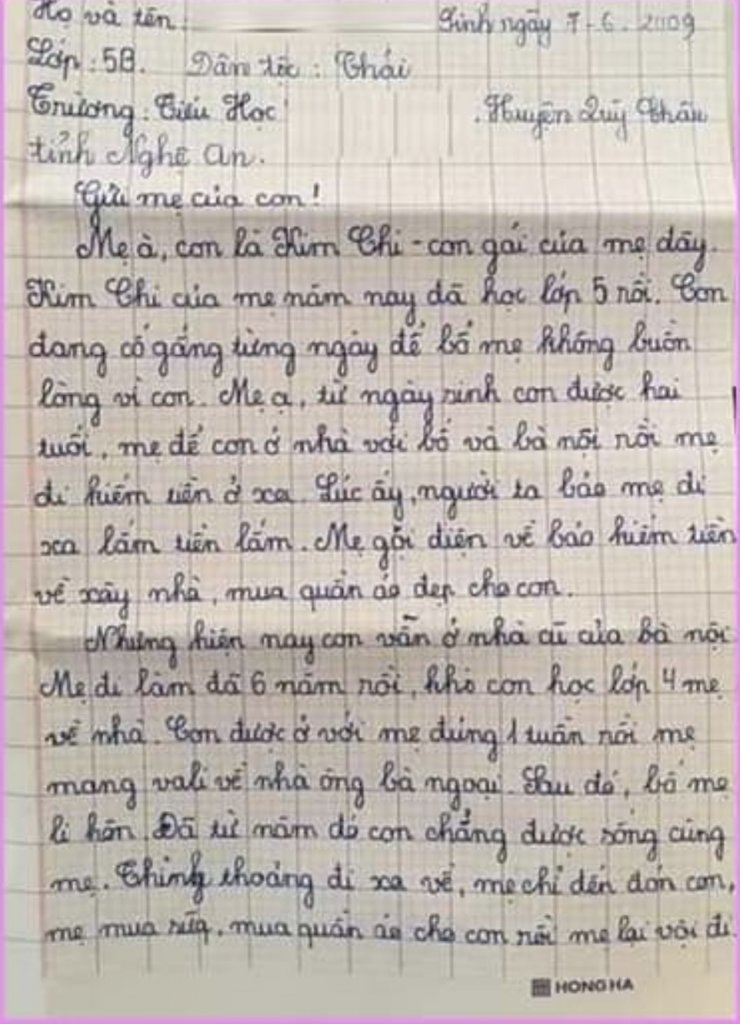 Họ và tên: Sinh ngày 7-6.2009
Lớp: 5B. Dân tộc: Thái
Trường: Tiểu Học Huyện Quỳ Châu
tỉnh Nghệ An.
Gửi mẹ của con!
Mẹ à, con là Kim Chi - con gái của mẹ đây.
Kim Chi của mẹ năm nay đã học lớp 5 rồi. Con
đang cố gắng từng ngày để bố mẹ không buồn
lòng vì con. Mẹ ạ, từ ngày sinh con được hai
tuổi, mẹ để con ở nhà với bố và bà nội rồi mẹ
đi kiếm tiền ở xa. Lúc ấy, người ta bảo mẹ đi
xa lắm tiền lắm. Mẹ gọi điện về bảo kiếm tiền
về xây nhà, mua quần áo đẹp cho con.
Nhưng hiện nay con vẫn ở nhà cũ của bà nội
Mẹ đi làm đã 6 năm rồi, khi con học lớp 4 mẹ
về nhà. Con được ở với mẹ đúng 1 tuần rồi mẹ
mang vali về nhà ông bà ngoại. Sau đó, bố mẹ
li hôn. Đã từ năm đó con chẳng được sống cùng
mẹ. Thỉnh thoảng đi xa về, mẹ chỉ đến đón con,
mẹ mua sữa, mua quần áo cho con rồi mẹ lại vội đi.
HONG HA